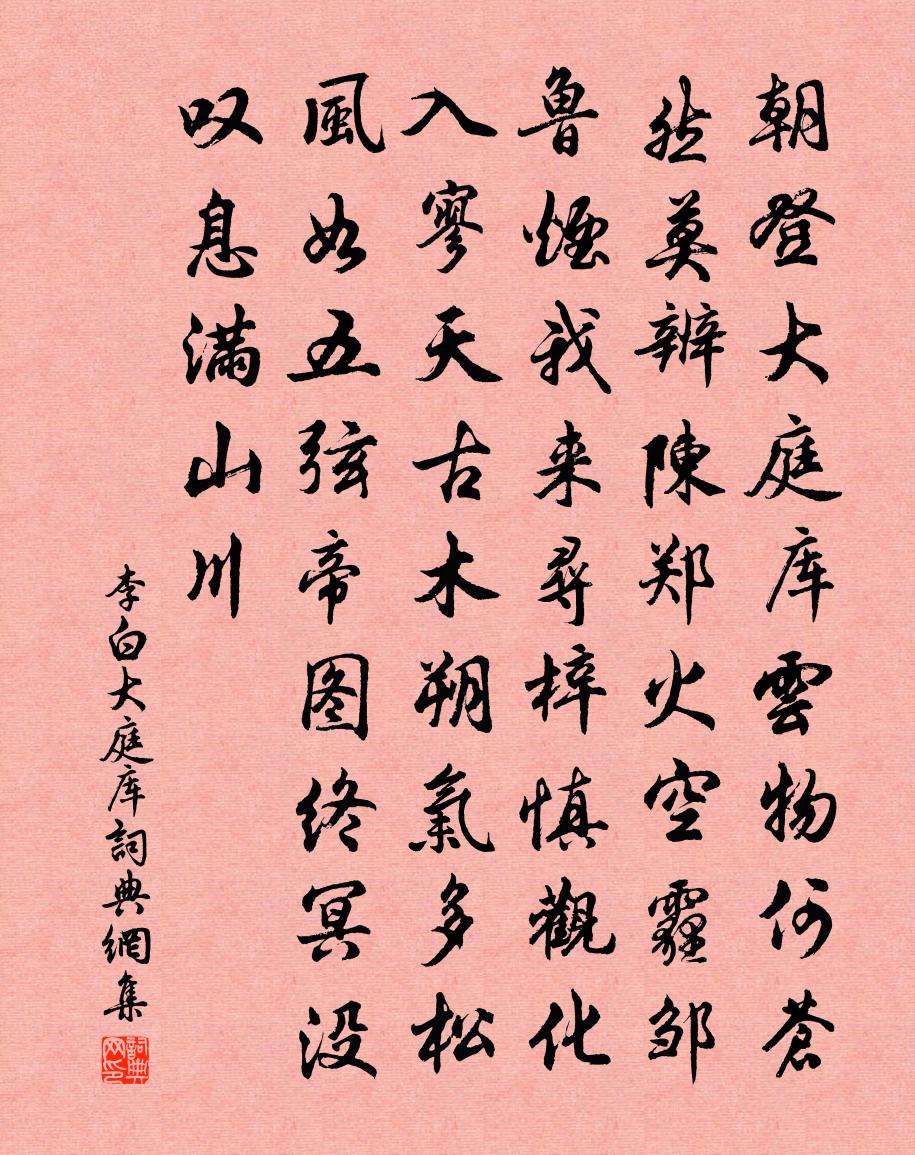 朝登大庭库雲物何苍
然莫辨陳郑火空霾邹
魯煙我来尋梓慎觀化
入寥天古木朔氣多松
風如五弦帝图终冥没
叹息滿山川
李白大庭库詞典網集
詞典网印